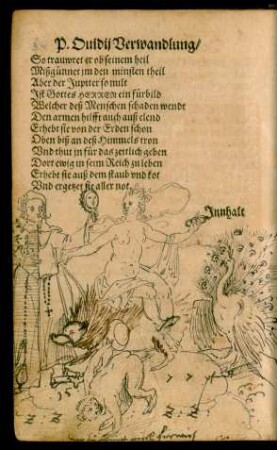 P. Ouidij Verwandlung/
So trauwret er ob seinem heil
Mißgünnet jm den minsten theil
Aber der Jupiter so milt
Ist Gottes HERREN ein fürbild
Welcher deß Menschen schaden wendt
Den armen hilfft auch auß elend
Erhebt sie von der Erden schon
Oben biß an deß Himmels tron
Vnd thut jn für das zeitlich geben
Dort ewig in seim Reich zu leben
Erhebt sie auß dem staub vnd kot
Vnd ergetzet sie aller not.
Innhalt